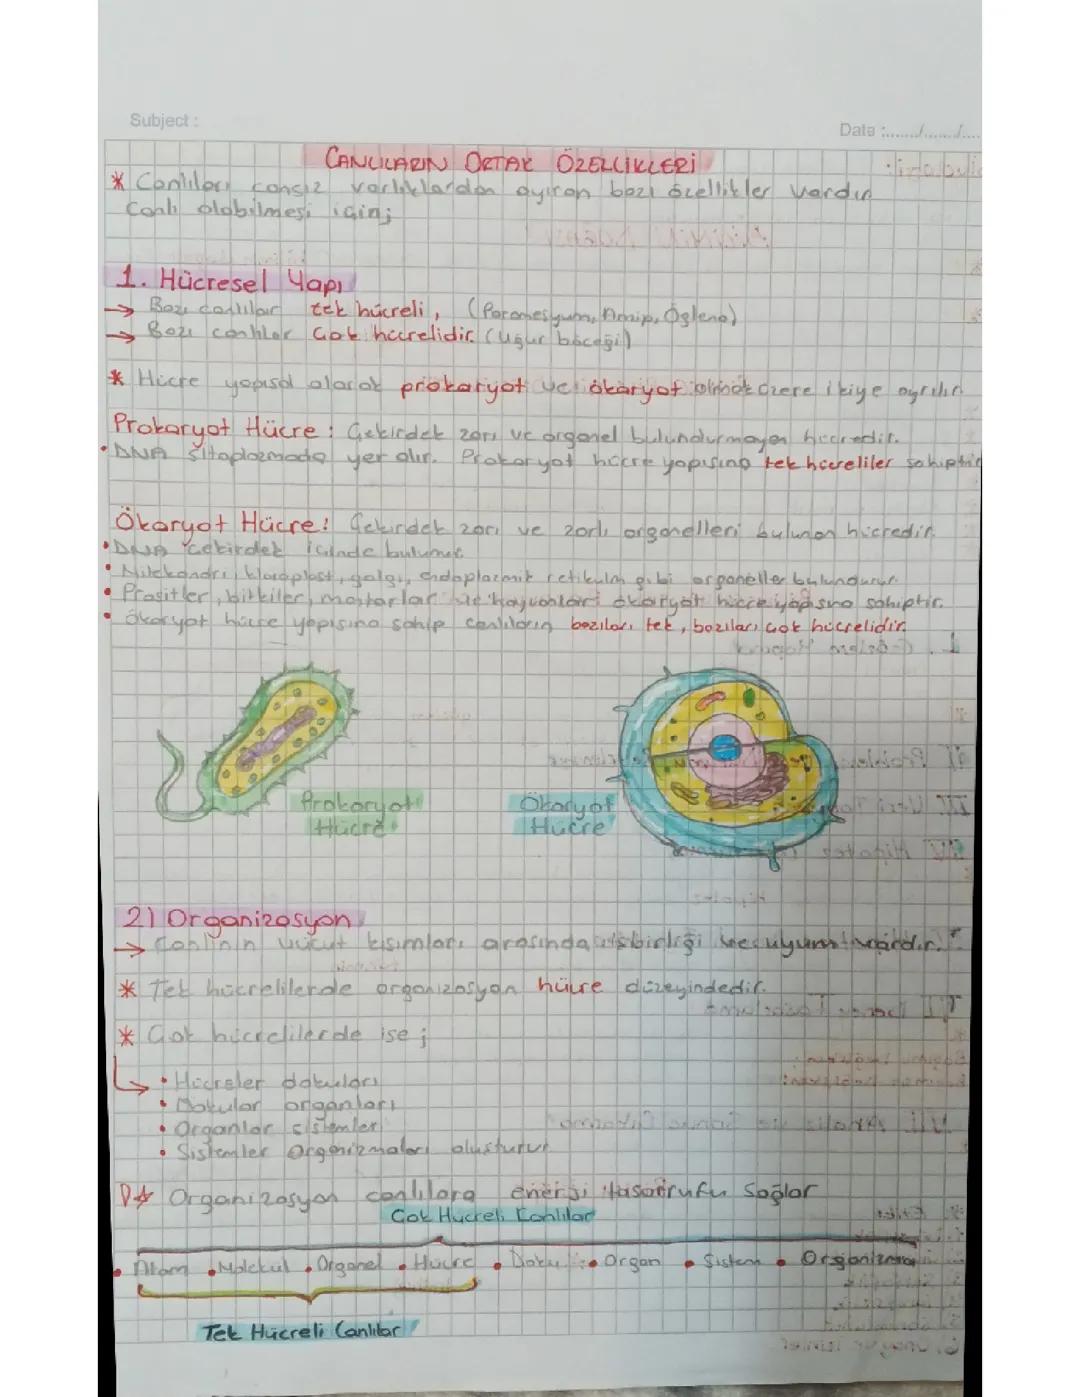 Subject :
Date :......./......./....
CANLILARIN ORTAK ÖZELLİKLERİ
* Canlıları cansız varlıklardan ayıran bazı özellikler vardır.
Canlı olabilmesi için;
1. Hücresel Yapı
→ Bazı canlılar tek hücreli, (Paramesyum, Amip, Öglena)
→ Bazı canlılar çok hücrelidir. (Uğur böceği)
* Hücre yapısal olarak prokaryot ve ökaryot olmak üzere ikiye ayrılır.
Prokaryot Hücre : Çekirdek zarı ve organel bulundurmayan hücredir.
• DNA sitoplazmada yer alır. Prokaryot hücre yapısına tek hücreliler sahiptir
Ökaryot Hücre: Çekirdek zarı ve zarlı organelleri bulunan hücredir.
• DNA çekirdek içinde bulunur.
• Mitokondri, kloroplast, golgi, endoplazmik retikulm gibi organeller bulundurur.
• Prositler, bitkiler, mantarlar ve hayvanları ökaryot hücre yapısına sahiptir.
• Ökaryot hücre yapısına sahip canlıların bazıları tek, bazıları çok hücrelidir.
Prokaryot Hücre
Ökaryot Hücre
2) Organizasyon
→ Canlının vücut kısımları arasında işbirliği ve uyum vardır.
* Tek hücrelilerde organizasyon hücre düzeyindedir.
* Çok hücrelilerde ise ;
• Hücreler dokuları
• Dokular organları
• Organlar sistemler
• Sistemler organizmaları oluşturur
Organizasyon canlılara enerji tasarrufu sağlar
Çok Hücreli Canlılar
• Atom • Molekül • Organel • Hücre • Doku • Organ • Sistem • Organizma
Tek Hücreli Canlılar